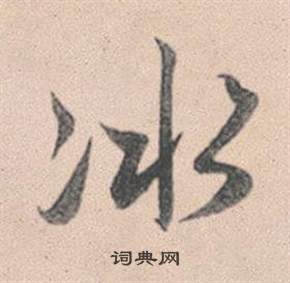 冰
词典网